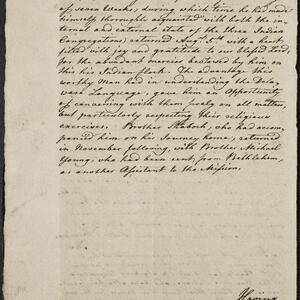 of seven Weeks, during which time he had made
himself thoroughly acquainted with both the in=
ternal and external state of the three Indian
Congregations, returned Augt. with a heart
filled with joy and gratitude to our blessed Lord,
for the abundant mercies bestowed by him on
this his Indian flock. The advantage this
worthy Man had in understanding the Dela,
ware Language, gave him an Opportunity
of conversing with them freely on all matters,
but particularly respecting their religious
exercises. Brother Shebosh, who had accom,
panied him on his Journey home, returned
in November following, with Brother Michael
Young, who had been sent, from Bethlehem,
as another Assistant to the Mission.
Having